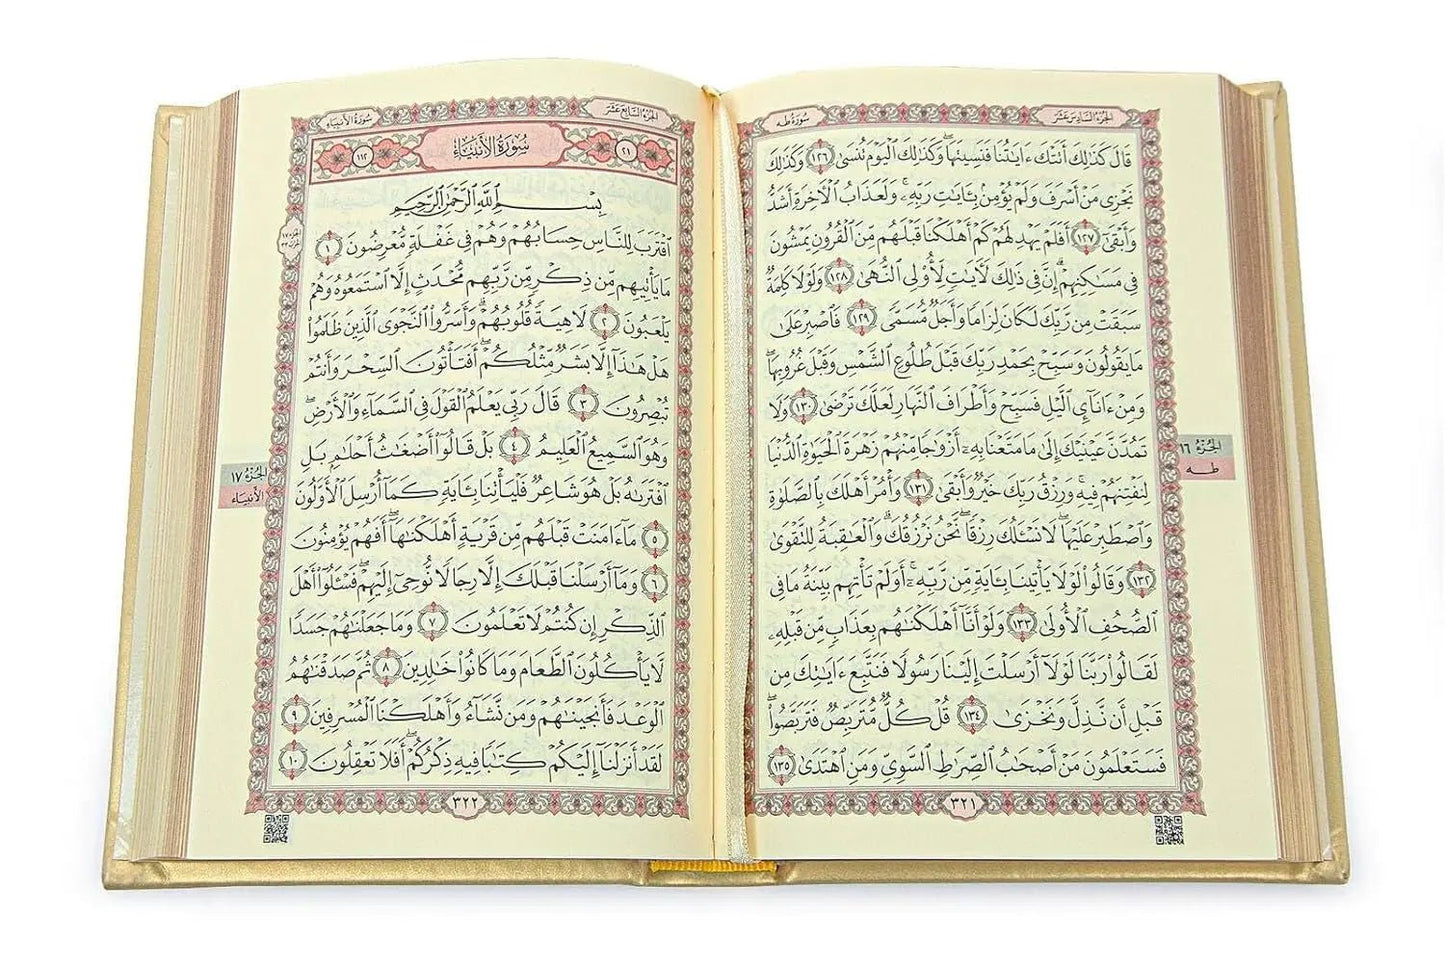 الجزء السادس عشر
سورة طه
قَالَ كَذَٰلِكَ أَتَتْكَ ءَايَٰتُنَا فَنَسِيتَهَا ۖ وَكَذَٰلِكَ ٱلْيَوْمَ تُنسَىٰ ١٢٦ وَكَذَٰلِكَ
نَجْزِى مَنْ أَسْرَفَ وَلَمْ يُؤْمِنۢ بِـَٔايَٰتِ رَبِّهِۦ ۚ وَلَعَذَابُ ٱلْـَٔاخِرَةِ أَشَدُّ
وَأَبْقَىٰٓ ١٢٧ أَفَلَمْ يَهْدِ لَهُمْ كَمْ أَهْلَكْنَا قَبْلَهُم مِّنَ ٱلْقُرُونِ يَمْشُونَ
فِى مَسَٰكِنِهِمْ ۗ إِنَّ فِى ذَٰلِكَ لَـَٔايَٰتٍ لِّأُو۟لِى ٱلنُّهَىٰ ١٢٨ وَلَوْلَا كَلِمَةٌ
سَبَقَتْ مِن رَّبِّكَ لَكَانَ لِزَامًا وَأَجَلٌ مُّسَمًّى ١٢٩ فَٱصْبِرْ عَلَىٰ
مَا يَقُولُونَ وَسَبِّحْ بِحَمْدِ رَبِّكَ قَبْلَ طُلُوعِ ٱلشَّمْسِ وَقَبْلَ غُرُوبِهَا ۖ
وَمِنْ ءَانَآئِ ٱلَّيْلِ فَسَبِّحْ وَأَطْرَافَ ٱلنَّهَارِ لَعَلَّكَ تَرْضَىٰ ١٣٠ وَلَا
تَمُدَّنَّ عَيْنَيْكَ إِلَىٰ مَا مَتَّعْنَا بِهِۦٓ أَزْوَٰجًا مِّنْهُمْ زَهْرَةَ ٱلْحَيَوٰةِ ٱلدُّنْيَا
لِنَفْتِنَهُمْ فِيهِ ۚ وَرِزْقُ رَبِّكَ خَيْرٌ وَأَبْقَىٰ ١٣١ وَأْمُرْ أَهْلَكَ بِٱلصَّلَوٰةِ
وَٱصْطَبِرْ عَلَيْهَا ۖ لَا نَسْـَٔلُكَ رِزْقًا ۖ نَّحْنُ نَرْزُقُكَ ۗ وَٱلْعَٰقِبَةُ لِلتَّقْوَىٰ
١٣٢ وَقَالُوا۟ لَوْلَا يَأْتِينَا بِـَٔايَةٍ مِّن رَّبِّهِۦٓ ۚ أَوَلَمْ تَأْتِهِم بَيِّنَةُ مَا فِى
ٱلصُّحُفِ ٱلْأُولَىٰ ١٣٣ وَلَوْ أَنَّآ أَهْلَكْنَٰهُم بِعَذَابٍ مِّن قَبْلِهِۦ
لَقَالُوا۟ رَبَّنَا لَوْلَآ أَرْسَلْتَ إِلَيْنَا رَسُولًا فَنَتَّبِعَ ءَايَٰتِكَ مِن
قَبْلِ أَن نَّذِلَّ وَنَخْزَىٰ ١٣٤ قُلْ كُلٌّ مُّتَرَبِّصٌ فَتَرَبَّصُوا۟ ۖ
فَسَتَعْلَمُونَ مَنْ أَصْحَٰبُ ٱلصِّرَٰطِ ٱلسَّوِىِّ وَمَنِ ٱهْتَدَىٰ ١٣٥
٣٢١
الجزء ١٦
طه
الجزء السابع عشر
سورة الأنبياء
٢١
سُورَةُ الأَنبِيَاءِ
١١٢
بِسْمِ ٱللَّهِ ٱلرَّحْمَٰنِ ٱلرَّحِيمِ
ٱقْتَرَبَ لِلنَّاسِ حِسَابُهُمْ وَهُمْ فِى غَفْلَةٍ مُّعْرِضُونَ ١
مَا يَأْتِيهِم مِّن ذِكْرٍ مِّن رَّبِّهِم مُّحْدَثٍ إِلَّا ٱسْتَمَعُوهُ وَهُمْ
يَلْعَبُونَ ٢ لَاهِيَةً قُلُوبُهُمْ ۗ وَأَسَرُّوا۟ ٱلنَّجْوَى ٱلَّذِينَ ظَلَمُوا۟
هَلْ هَٰذَآ إِلَّا بَشَرٌ مِّثْلُكُمْ ۖ أَفَتَأْتُونَ ٱلسِّحْرَ وَأَنتُمْ
تُبْصِرُونَ ٣ قَالَ رَبِّى يَعْلَمُ ٱلْقَوْلَ فِى ٱلسَّمَآءِ وَٱلْأَرْضِ ۖ
وَهُوَ ٱلسَّمِيعُ ٱلْعَلِيمُ ٤ بَلْ قَالُوٓا۟ أَضْغَٰثُ أَحْلَٰمٍۭ بَلِ
ٱفْتَرَىٰهُ بَلْ هُوَ شَاعِرٌ فَلْيَأْتِنَا بِـَٔايَةٍ كَمَآ أُرْسِلَ ٱلْأَوَّلُونَ
٥ مَآ ءَامَنَتْ قَبْلَهُم مِّن قَرْيَةٍ أَهْلَكْنَٰهَآ ۖ أَفَهُمْ يُؤْمِنُونَ
٦ وَمَآ أَرْسَلْنَا قَبْلَكَ إِلَّا رِجَالًا نُّوحِىٓ إِلَيْهِمْ ۖ فَسْـَٔلُوٓا۟ أَهْلَ
ٱلذِّكْرِ إِن كُنتُمْ لَا تَعْلَمُونَ ٧ وَمَا جَعَلْنَٰهُمْ جَسَدًا
لَّا يَأْكُلُونَ ٱلطَّعَامَ وَمَا كَانُوا۟ خَٰلِدِينَ ٨ ثُمَّ صَدَقْنَٰهُمُ
ٱلْوَعْدَ فَأَنجَيْنَٰهُمْ وَمَن نَّشَآءُ وَأَهْلَكْنَا ٱلْمُسْرِفِينَ ٩
لَقَدْ أَنزَلْنَآ إِلَيْكُمْ كِتَٰبًا فِيهِ ذِكْرُكُمْ ۖ أَفَلَا تَعْقِلُونَ ١٠
٣٢٢
الجزء ١٧
الأنبياء